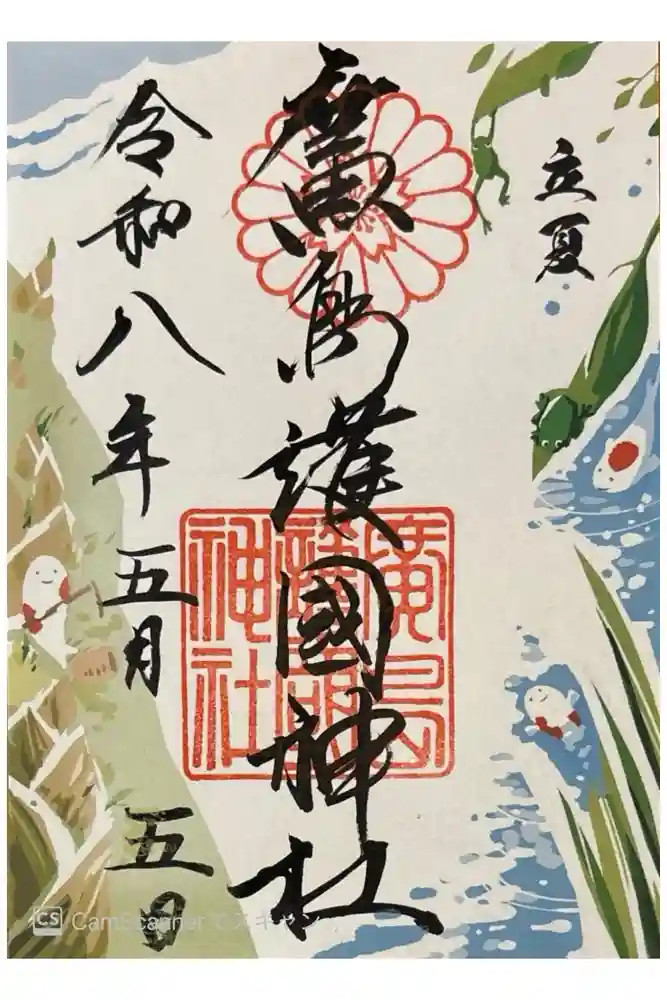 立夏
廣島護國神社
廣島
護國
神社
令和八年五月五日
CS CamScanner でスキャン